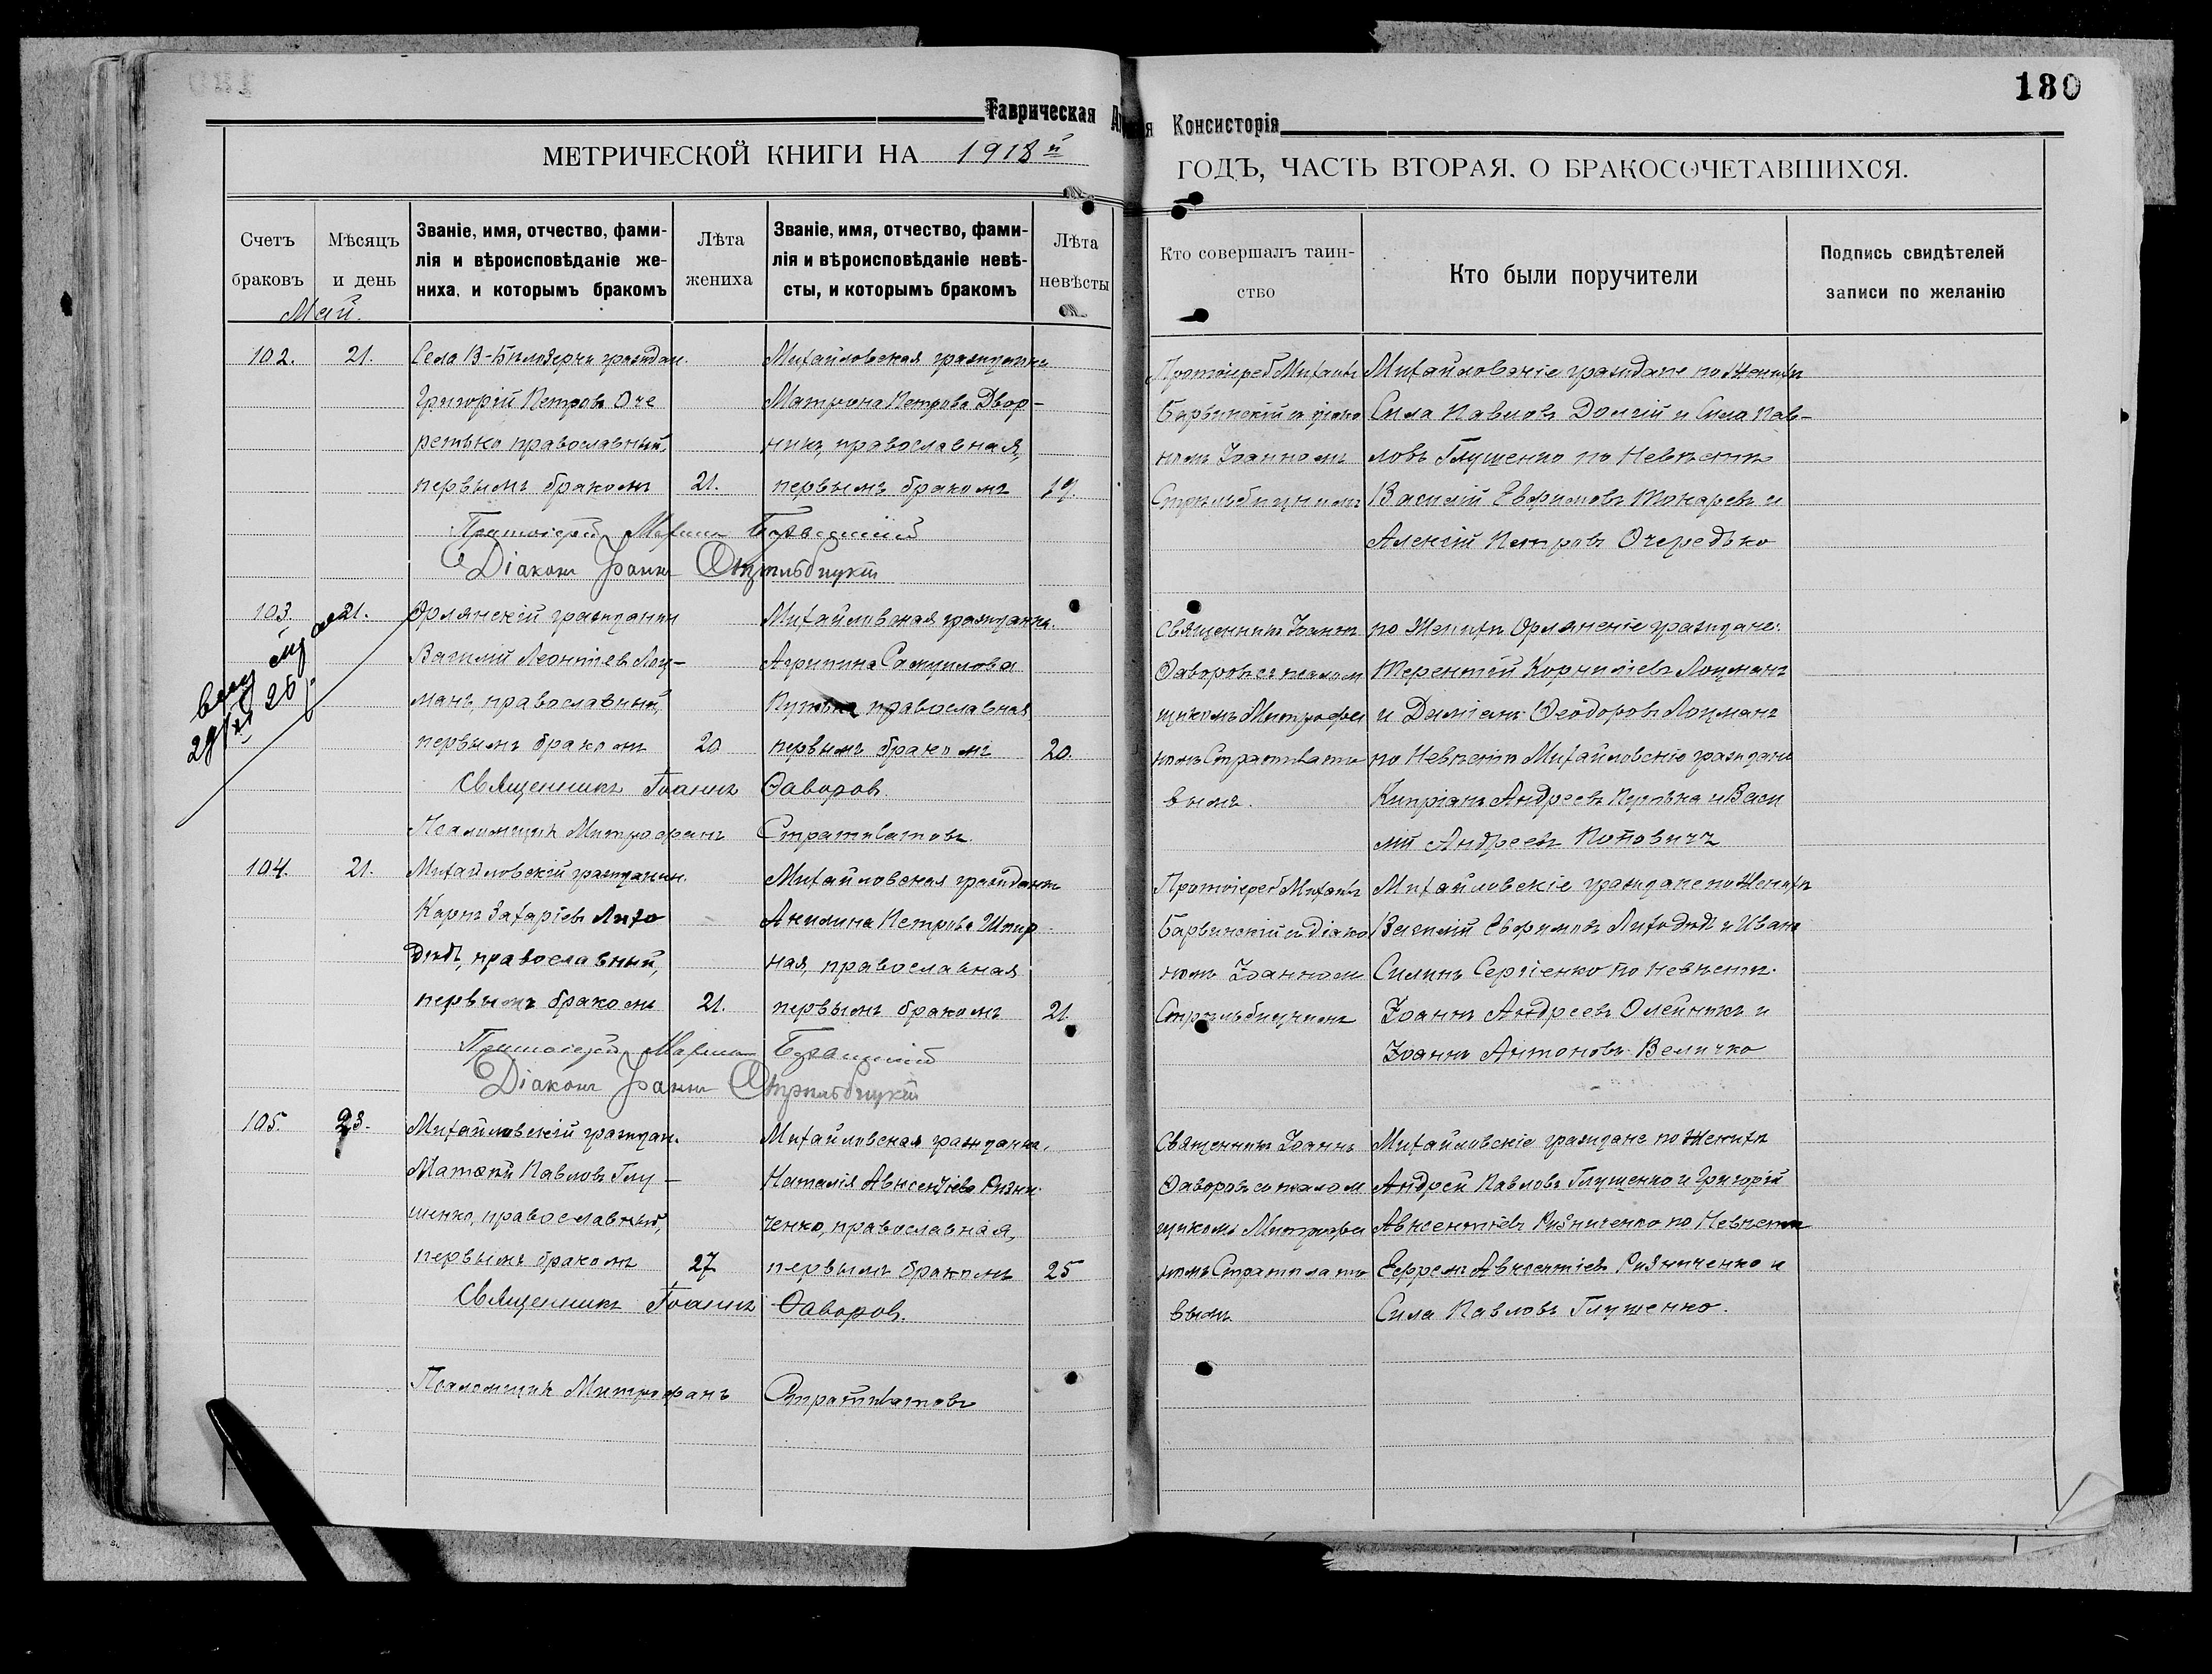 180
Таврическая Консисторія
МЕТРИЧЕСКОЙ КНИГИ НА 1918й ГОДЪ, ЧАСТЬ ВТОРАЯ, О БРАКОСОЧЕТАВШИХСЯ.
Счетъ браковъ
Мѣсяцъ и день
Званіе, имя, отчество, фами-
лія и вѣроисповѣданіе же-
ниха, и которымъ бракомъ
Лѣта жениха
Званіе, имя, отчество, фами-
лія и вѣроисповѣданіе невѣ-
сты, и которымъ бракомъ
Лѣта невѣсты
Кто совершалъ таин-
ство
Кто были поручители
Подпись свидѣтелей
записи по желанію
Май.
102. 21.
Села В-Бѣлозерки граждан.
Григорій Петровъ Оче
ретько православный,
первымъ бракомъ 21.
Михайловская гражданка
Матрона Петрова Двор-
никъ, православная,
первымъ бракомъ 19.
Протоіерей Михаилъ
Барвинскій съ діако
номъ Іоанномъ
Стрѣльбицкимъ
Михайловскіе граждане по Женихѣ
Сила Павловъ Долгій и Сила Пав-
ловъ Глущенко по Невѣстѣ
Василій Евфимовъ Токаревъ и
Алексій Петровъ Очередько
Протоіерей Михаилъ Барвинскій
Діаконъ Іоаннъ Стрѣльбицкій
103. 21.
Орлянскій гражданин
Василій Леонтіев Лоц-
манъ, православный,
первымъ бракомъ 20
Михайловская гражданка.
Агрипина Самуилова
православная
первымъ бракомъ 20.
Священникъ Іоаннъ
Ѳаворовъ съ псалом
щикомъ Митрофа
номъ Стратилато
вымъ.
по Женихѣ Орлянскіе граждане:
Терентій Корниліевъ Лоцманъ
и Даміанъ Ѳеодоровъ Лоцманъ
по Невѣстѣ Михайловскіе граждане
Кипріанъ Андреевъ и Васи
лій Андреевъ Поповичъ
Священникъ Іоаннъ Ѳаворов.
Псаломщикъ Митрофанъ Стратилатовъ.
104. 21.
Михайловскій гражданин.
Карпъ Захаріевъ Лихо
дѣдъ, православный,
первымъ бракомъ 21.
Михайловская гражданка
Акилина Петрова Шкир
ная, православная
первымъ бракомъ 21.
Протоіерей Михаилъ
Барвинскій съ діако
номъ Іоанномъ
Стрѣльбицкимъ
Михайловскіе граждане по Женихѣ
Василій Евфимовъ Лиходѣдъ и Иванъ
Силинъ Сергіенко по невѣстѣ.
Іоаннъ Андреевъ Олейникъ и
Іоаннъ Антоновъ Величко
Протоіерей Михаилъ Барвинскій
Діаконъ Іоаннъ Стрѣльбицкій
105. 23.
Михайловскій граждан.
Матѳей Павловъ Глу-
щенко, православный,
первымъ бракомъ 27
Михайловская гражданка.
Наталія Авксентіева Ризни-
ченко, православная,
первымъ бракомъ 25
Священникъ Іоаннъ
Ѳаворовъ со псалом
щикомъ Митрофа
номъ Стратилато
вымъ
Михайловскіе граждане по Женихѣ
Андрей Павловъ Глущенко и Григорій
Авксентіевъ Ризниченко по Невѣстѣ
Ефремъ Авксентіевъ Ризниченко и
Сила Павловъ Глущенко.
Священникъ Іоаннъ Ѳаворов.
Псаломщикъ Митрофанъ Стратилатовъ